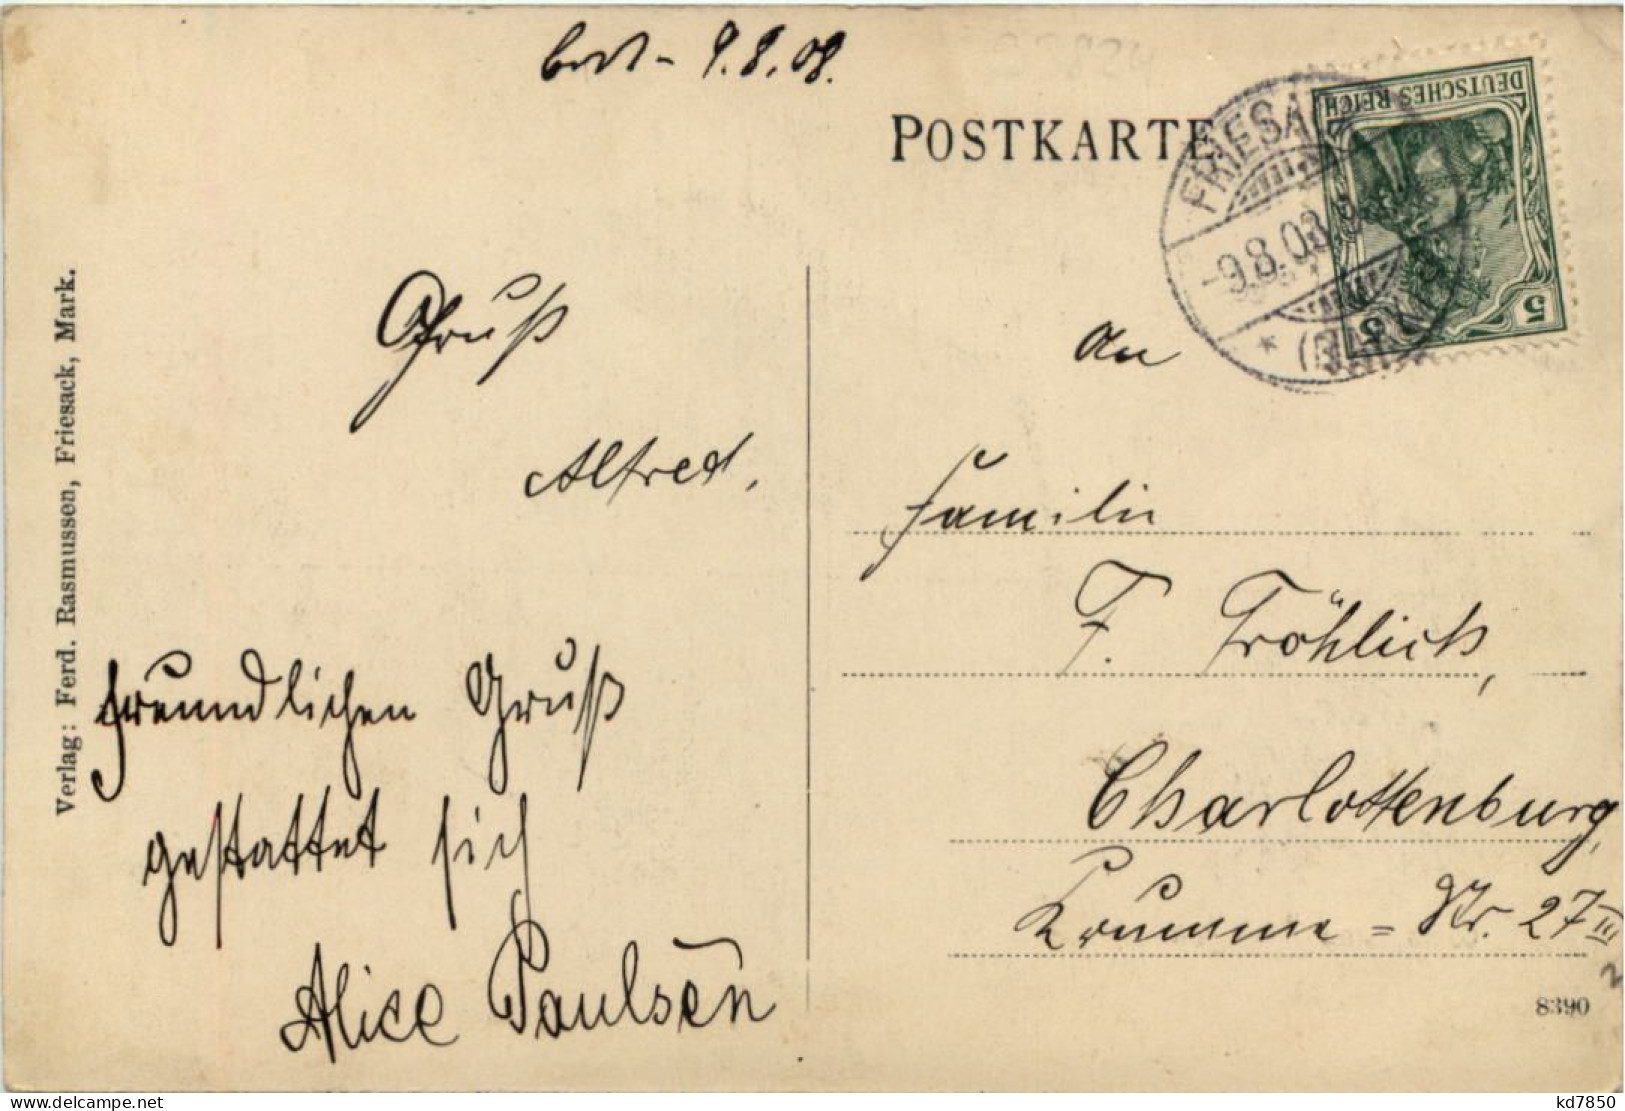 9.8.08.
POSTKARTE
DEUTSCHES REICH
5 5
FRIESACK
-9.8.08.
* (MARK)
An
Gruß
Alfred.
Familie
F. Fröhlich,
Charlottenburg,
Krumme = Str. 27 III
freundlichen Gruß
gestattet sich
Alice Paulsen
Verlag: Ferd. Rasmussen, Friesack, Mark.
8390
kd7850